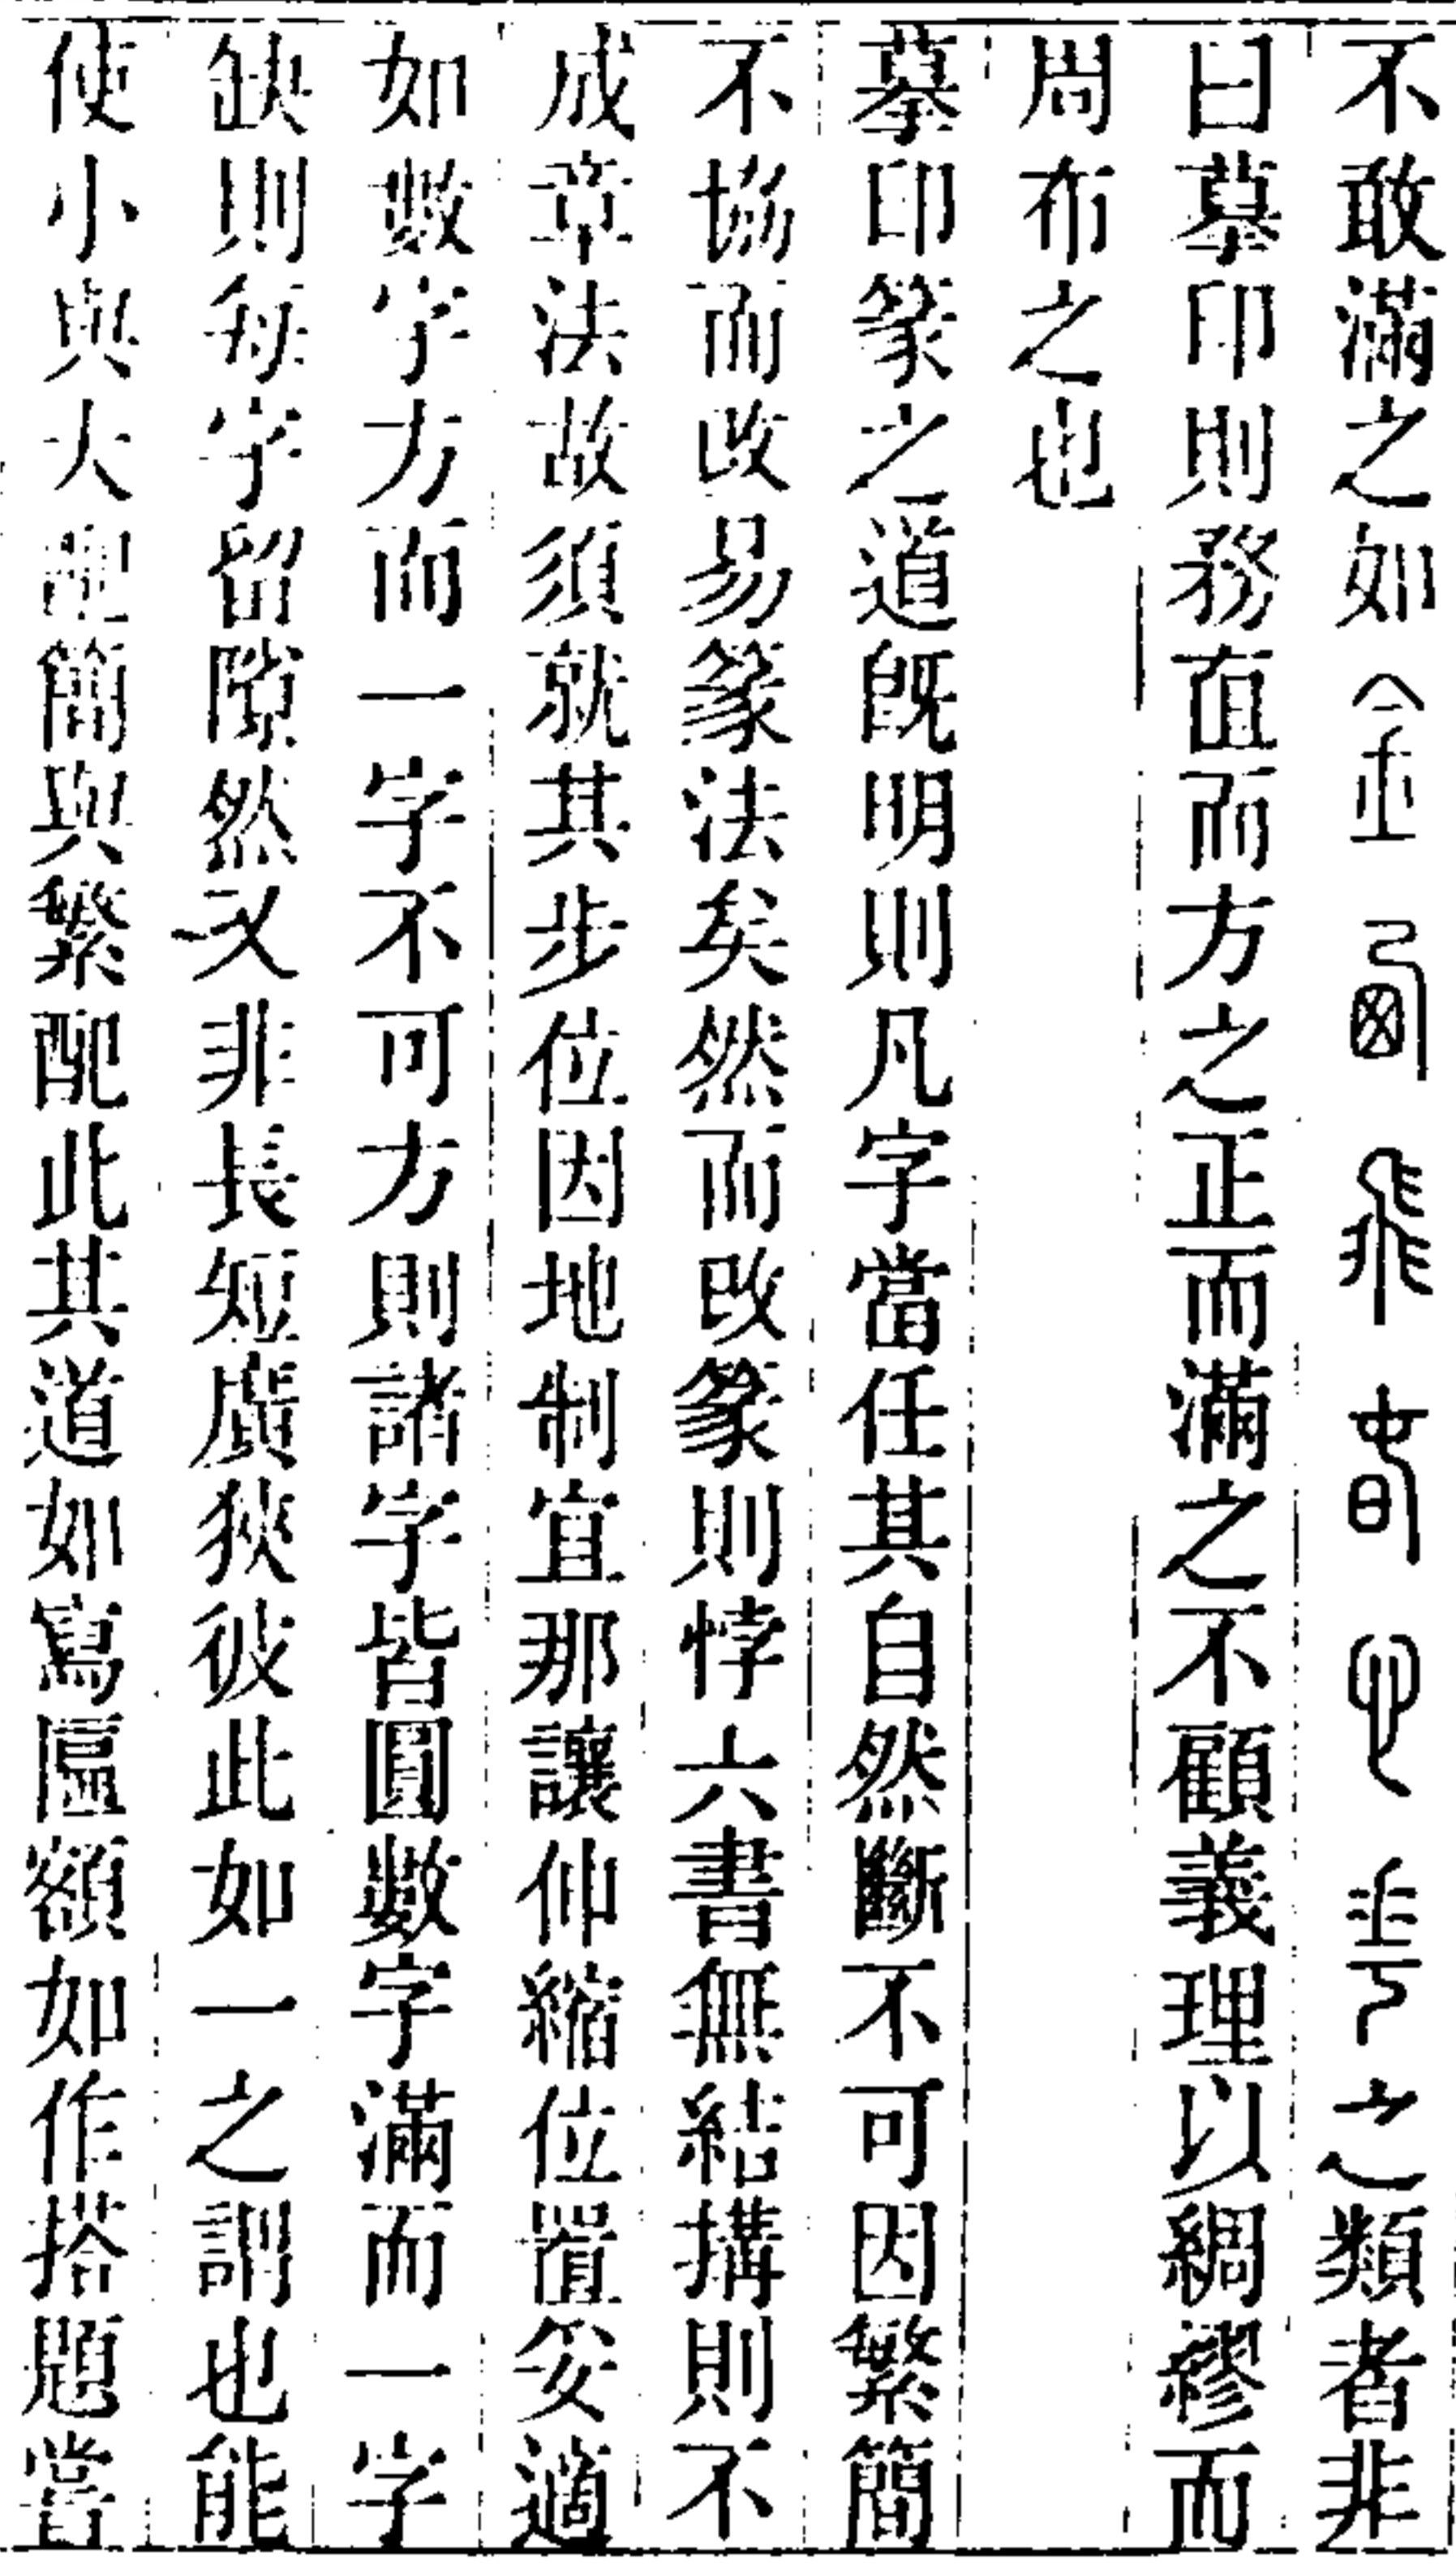 不敢滿之如之類者非
曰摹印則務直而方之正而滿之不顧義理以綢繆而
周布之也
摹印篆之道旣明則凡字當任其自然斷不可因繁簡
不協而改易篆法矣然而改篆則悖六書無結搆則不
成章法故須就其步位因地制宜那讓伸縮位置安適
如數字方而一字不可方則諸字皆圓數字滿而一字
缺則每字留隙然又非長短廣狹彼此如一之謂也能
使小與大配簡與繁配此其道如寫匾額如作搭題嘗